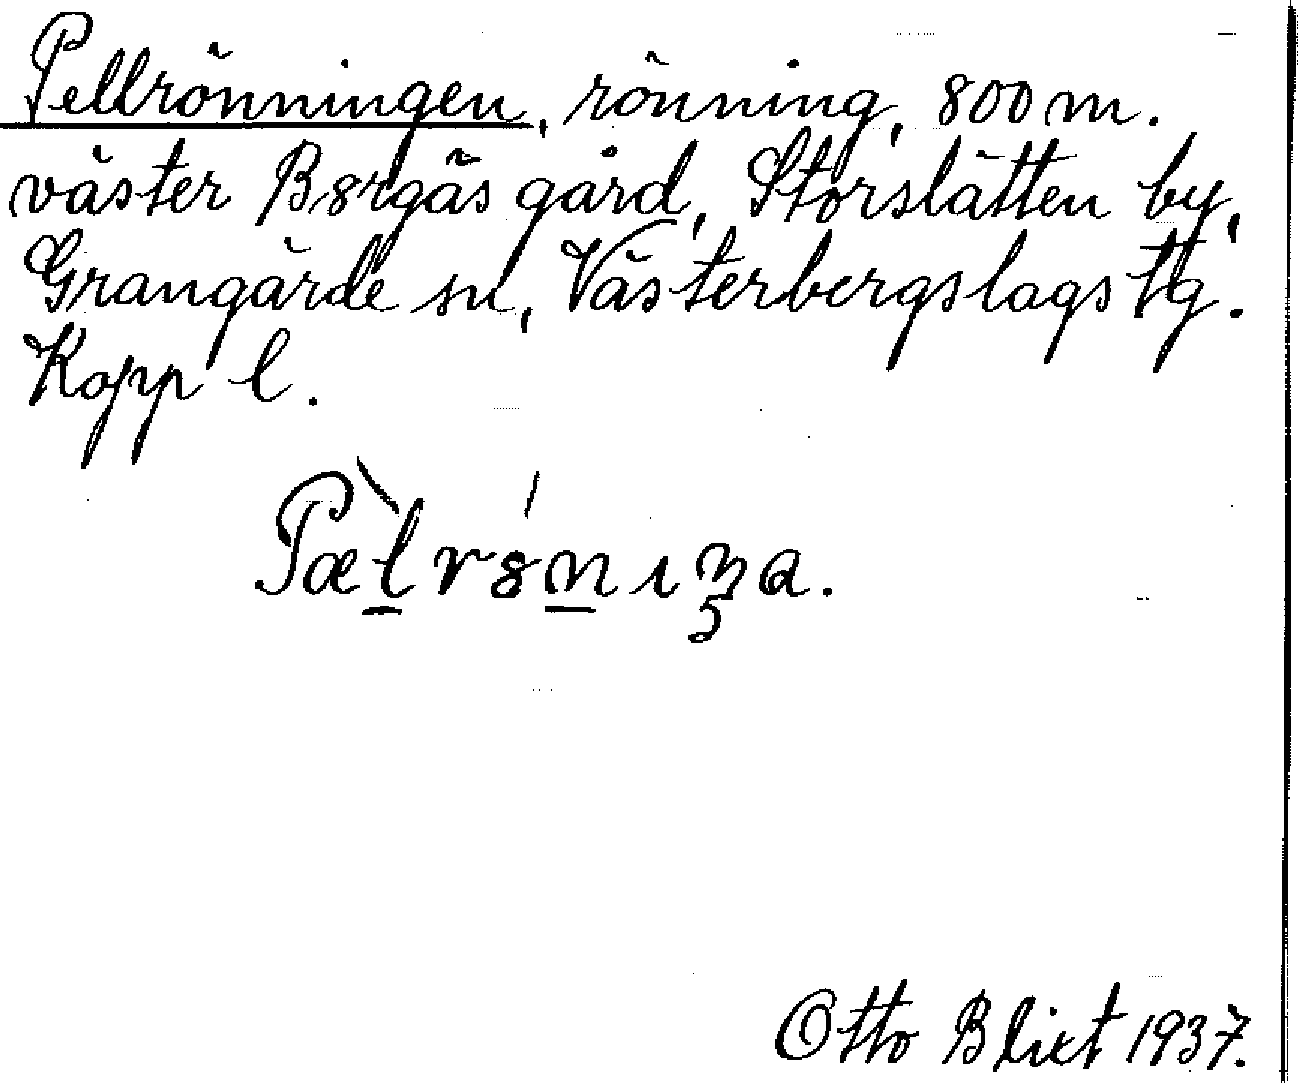 Pellrönningen, rönning, 800 m.
väster Bergäs gård, Storslätten by,
Grangärde sn, Västerbergslags tg.
Kopp l.
Pæ̀l̲rȣ́n̲ıŋa.
Otto Blixt 1937.